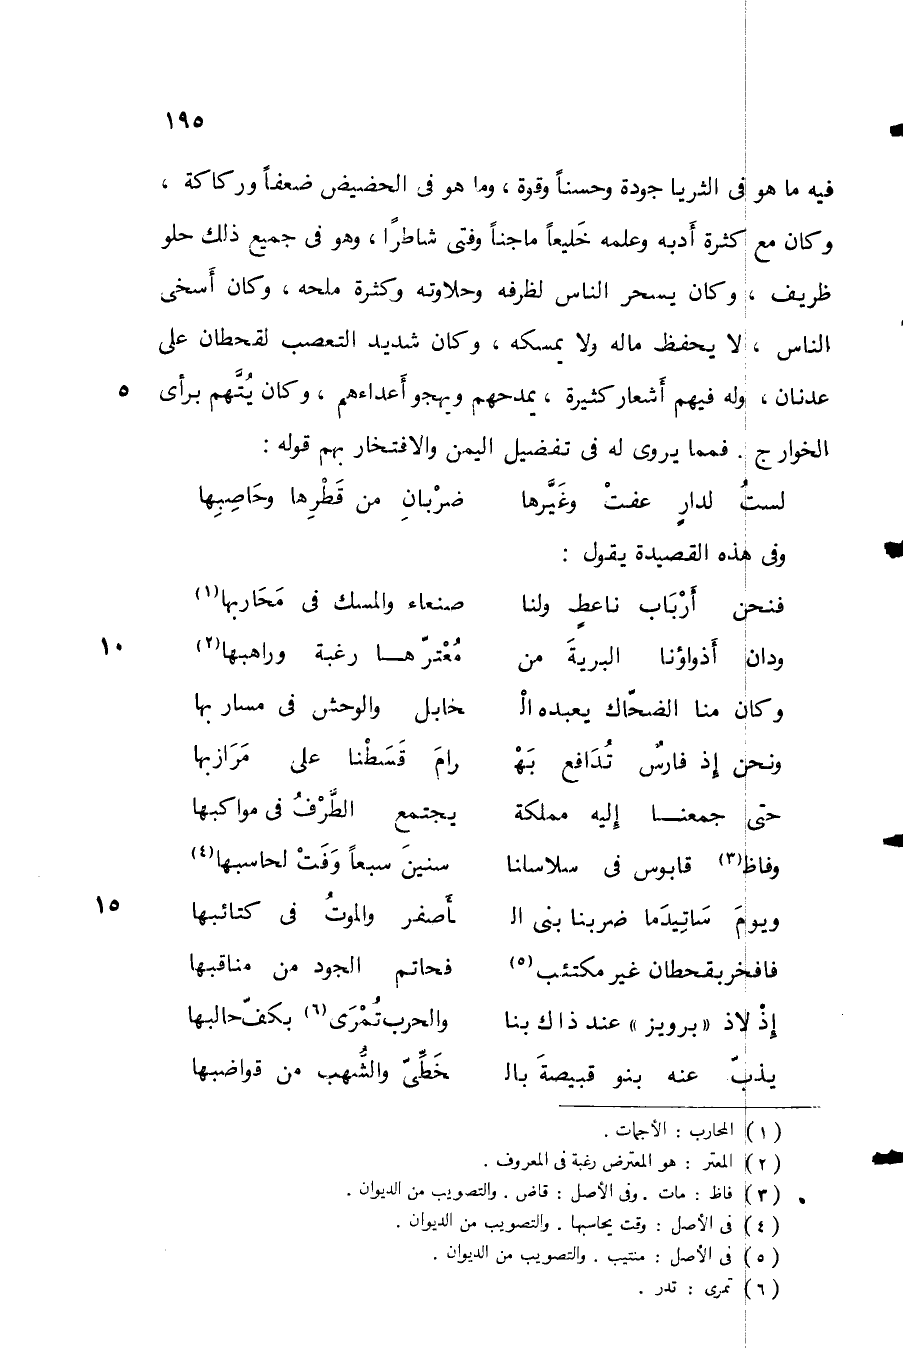 ١٩٥
فيه ما هو فى الثريا جودة وحسناً وقوة ، وما هو فى الحضيض ضعفاً وركاكة ،
وكان مع كثرة أدبه وعلمه خَليعاً ماجناً وفتى شاطرًا ، وهو فى جميع ذلك حلو
ظريف ، وكان يسحر الناس لظرفه وحلاوته وكثرة ملحه ، وكان أسخى
الناس ، لا يحفظ ماله ولا يمسكه ، وكان شديد التعصب لقحطان على
عدنان ، وله فيهم أشعار كثيرة ، يمدحهم ويهجو أعداءهم ، وكان يُتَّهم برأى ٥
الخوارج . فمما يروى له فى تفضيل اليمن والافتخار بهم قوله :
لستُ لدارٍ عفتْ وغَيَّرها ضرْبانِ من قَطْرِها وحَاصِبِها
وفى هذه القصيدة يقول :
فنحن أَرْبَاب ناعطٍ ولنا صنعاء والمسك فى مَحَاربها(١)
ودان أذواؤنا البريةَ من مُعْترّهـا رغبة وراهبها(٢) ١٠
وكان منا الضحّاك يعبده الْ خابل والوحش فى مساربها
ونحن إذ فارسٌ تُدَافع بَهْ رامَ قَسَطْنا على مَرَازبها
حتى جمعنـا إليه مملكة يجتمع الطَّرْفُ فى مواكبها
وفاظ(٣) قابوس فى سلاسلنا سنينَ سبعاً وَفَتْ لحاسبها(٤)
ويومَ سَاتِيدَما ضربنا بنى الـ ـأصفر والموتُ فى كتائبها ١٥
فافخر بقحطان غير مكتئب(٥) فحاتم الجود من مناقبها
إذْ لاذ «برويز» عند ذاك بنا والحرب تُمْرَى(٦) بكفّ حالبها
يذبّ عنه بنو قبيصةَ بالـ خَطِّىّ والشُّهب من قواضبها
(١) المحارب : الأجمات .
(٢) المعتر : هو المعترض رغبة فى المعروف .
(٣) فاظ : مات . وفى الأصل : قاض . والتصويب من الديوان .
(٤) فى الأصل : وقت يحاسبها . والتصويب من الديوان .
(٥) فى الأصل : منتيب . والتصويب من الديوان .
(٦) تمرى : تدر .